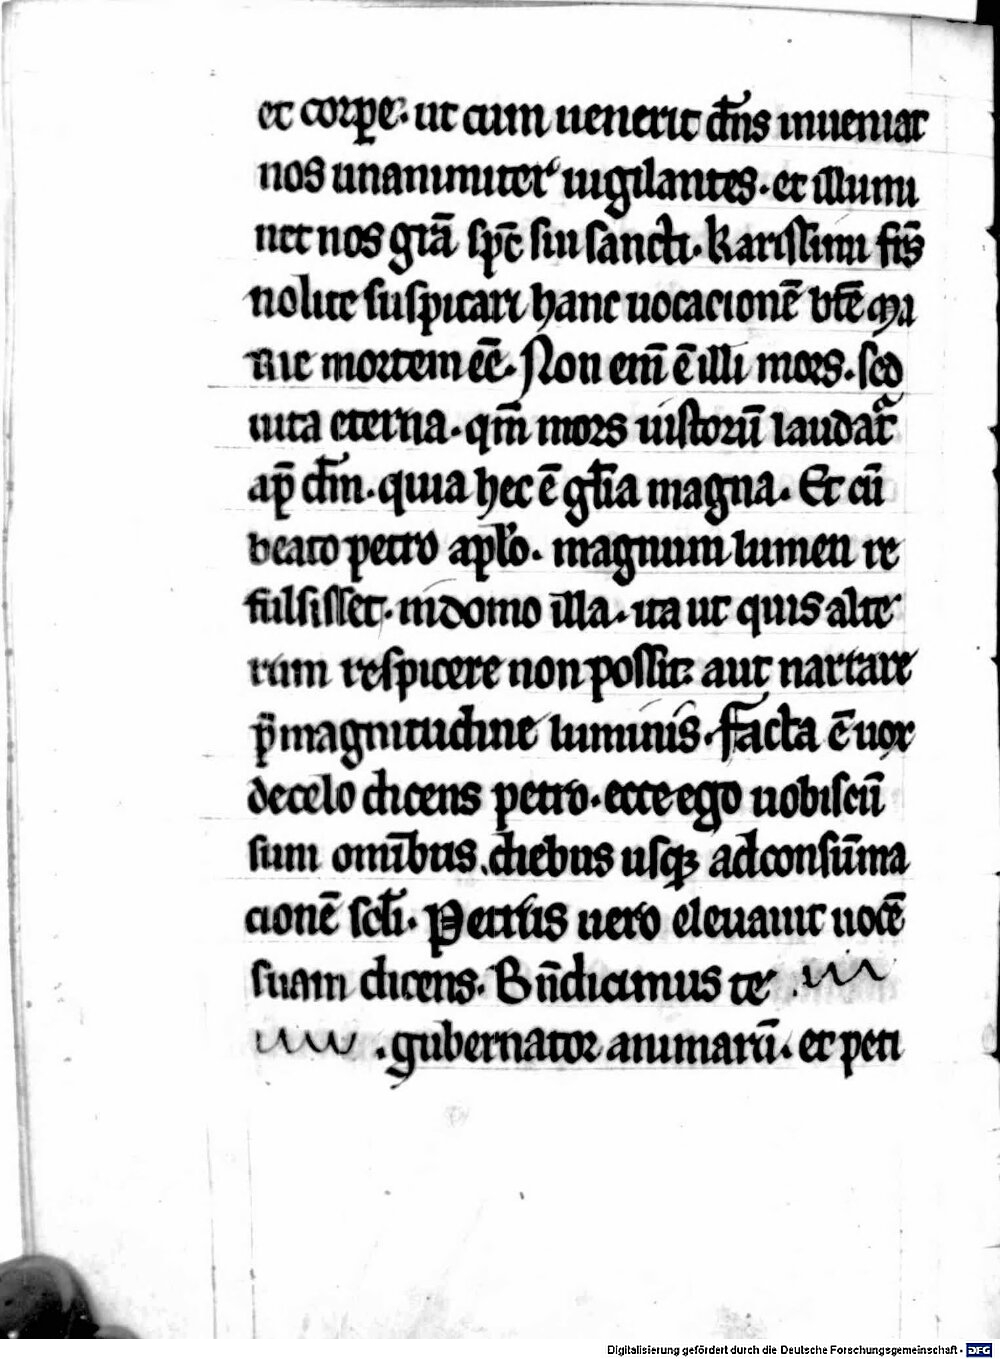 et corꝑe. ut cum uenerit dn̄s inueniat
nos unanimiter uigilantes. et illumi
net nos gr̄a sp̄c sui sancti. karissimi fr̄s
nolite suspicari hanc uocacionē vr̄e ma
rie mortem eē. Non enī ē illi mors. sed
uita eterna. qm̄ mors iustorū laudat᷑
ap̄ dm̄. quia hec ē gl̄ia magna. Et cū
beato petro apl̄o. magnum lumen re
fulsisset. in domo illa. ita ut quis alte
rum respicere non possit. aut narrare
p̄ magnitudine luminis. facta ē uox
de celo dicens petro. ecce ego uobiscū
sum omībus diebus usqꝫ ad consūma
cionē scl̄i. Petrus uero eleuauit uocē
suam dicens. Bn̄dicamus te
. gubernator animarū. et peti
Digitalisierung gefördert durch die Deutsche Forschungsgemeinschaft - DFG